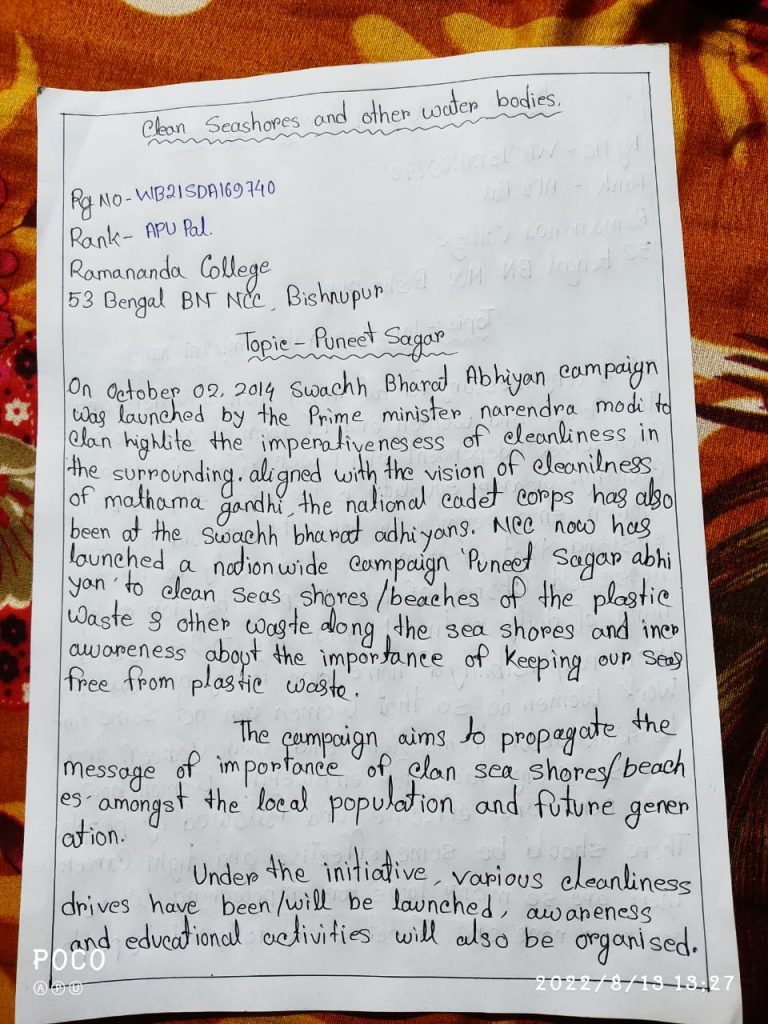 Clean Seashores and other water bodies.
Rg No - WB21SDA169740
Rank - APU Pal.
Ramananda College
53 Bengal BN NCC, Bishnupur
Topic - Puneet Sagar
On October 02, 2014 Swachh Bharat Abhiyan campaign
was launched by the Prime minister narendra modi to
clan highlite the imperativenesess of cleanliness in
the surrounding. aligned with the vision of cleanilness
of mathama gandhi, the national cadet corps has also
been at the swachh bharat adhiyans. NCC now has
launched a nationwide campaign 'Puneet Sagar abhi
yan' to clean seas shores/beaches of the plastic
waste & other waste along the sea shores and incr
awareness about the importance of keeping our seas
free from plastic waste.
The campaign aims to propagate the
message of importance of clan sea shores/beach
es amongst the local population and future gener
ation.
Under the initiative, various cleanliness
drives have been/will be launched, awareness
and educational activities will also be organised.
POCO
APU
2022/8/13 13:27